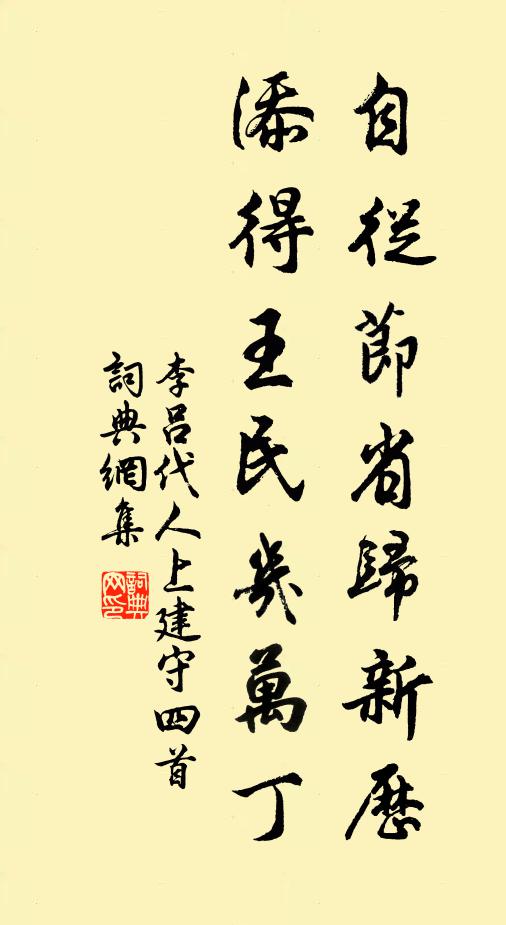 自從節省歸新歷
添得王民幾萬丁
李呂代人上建守四首
詞典網集
詞典网印